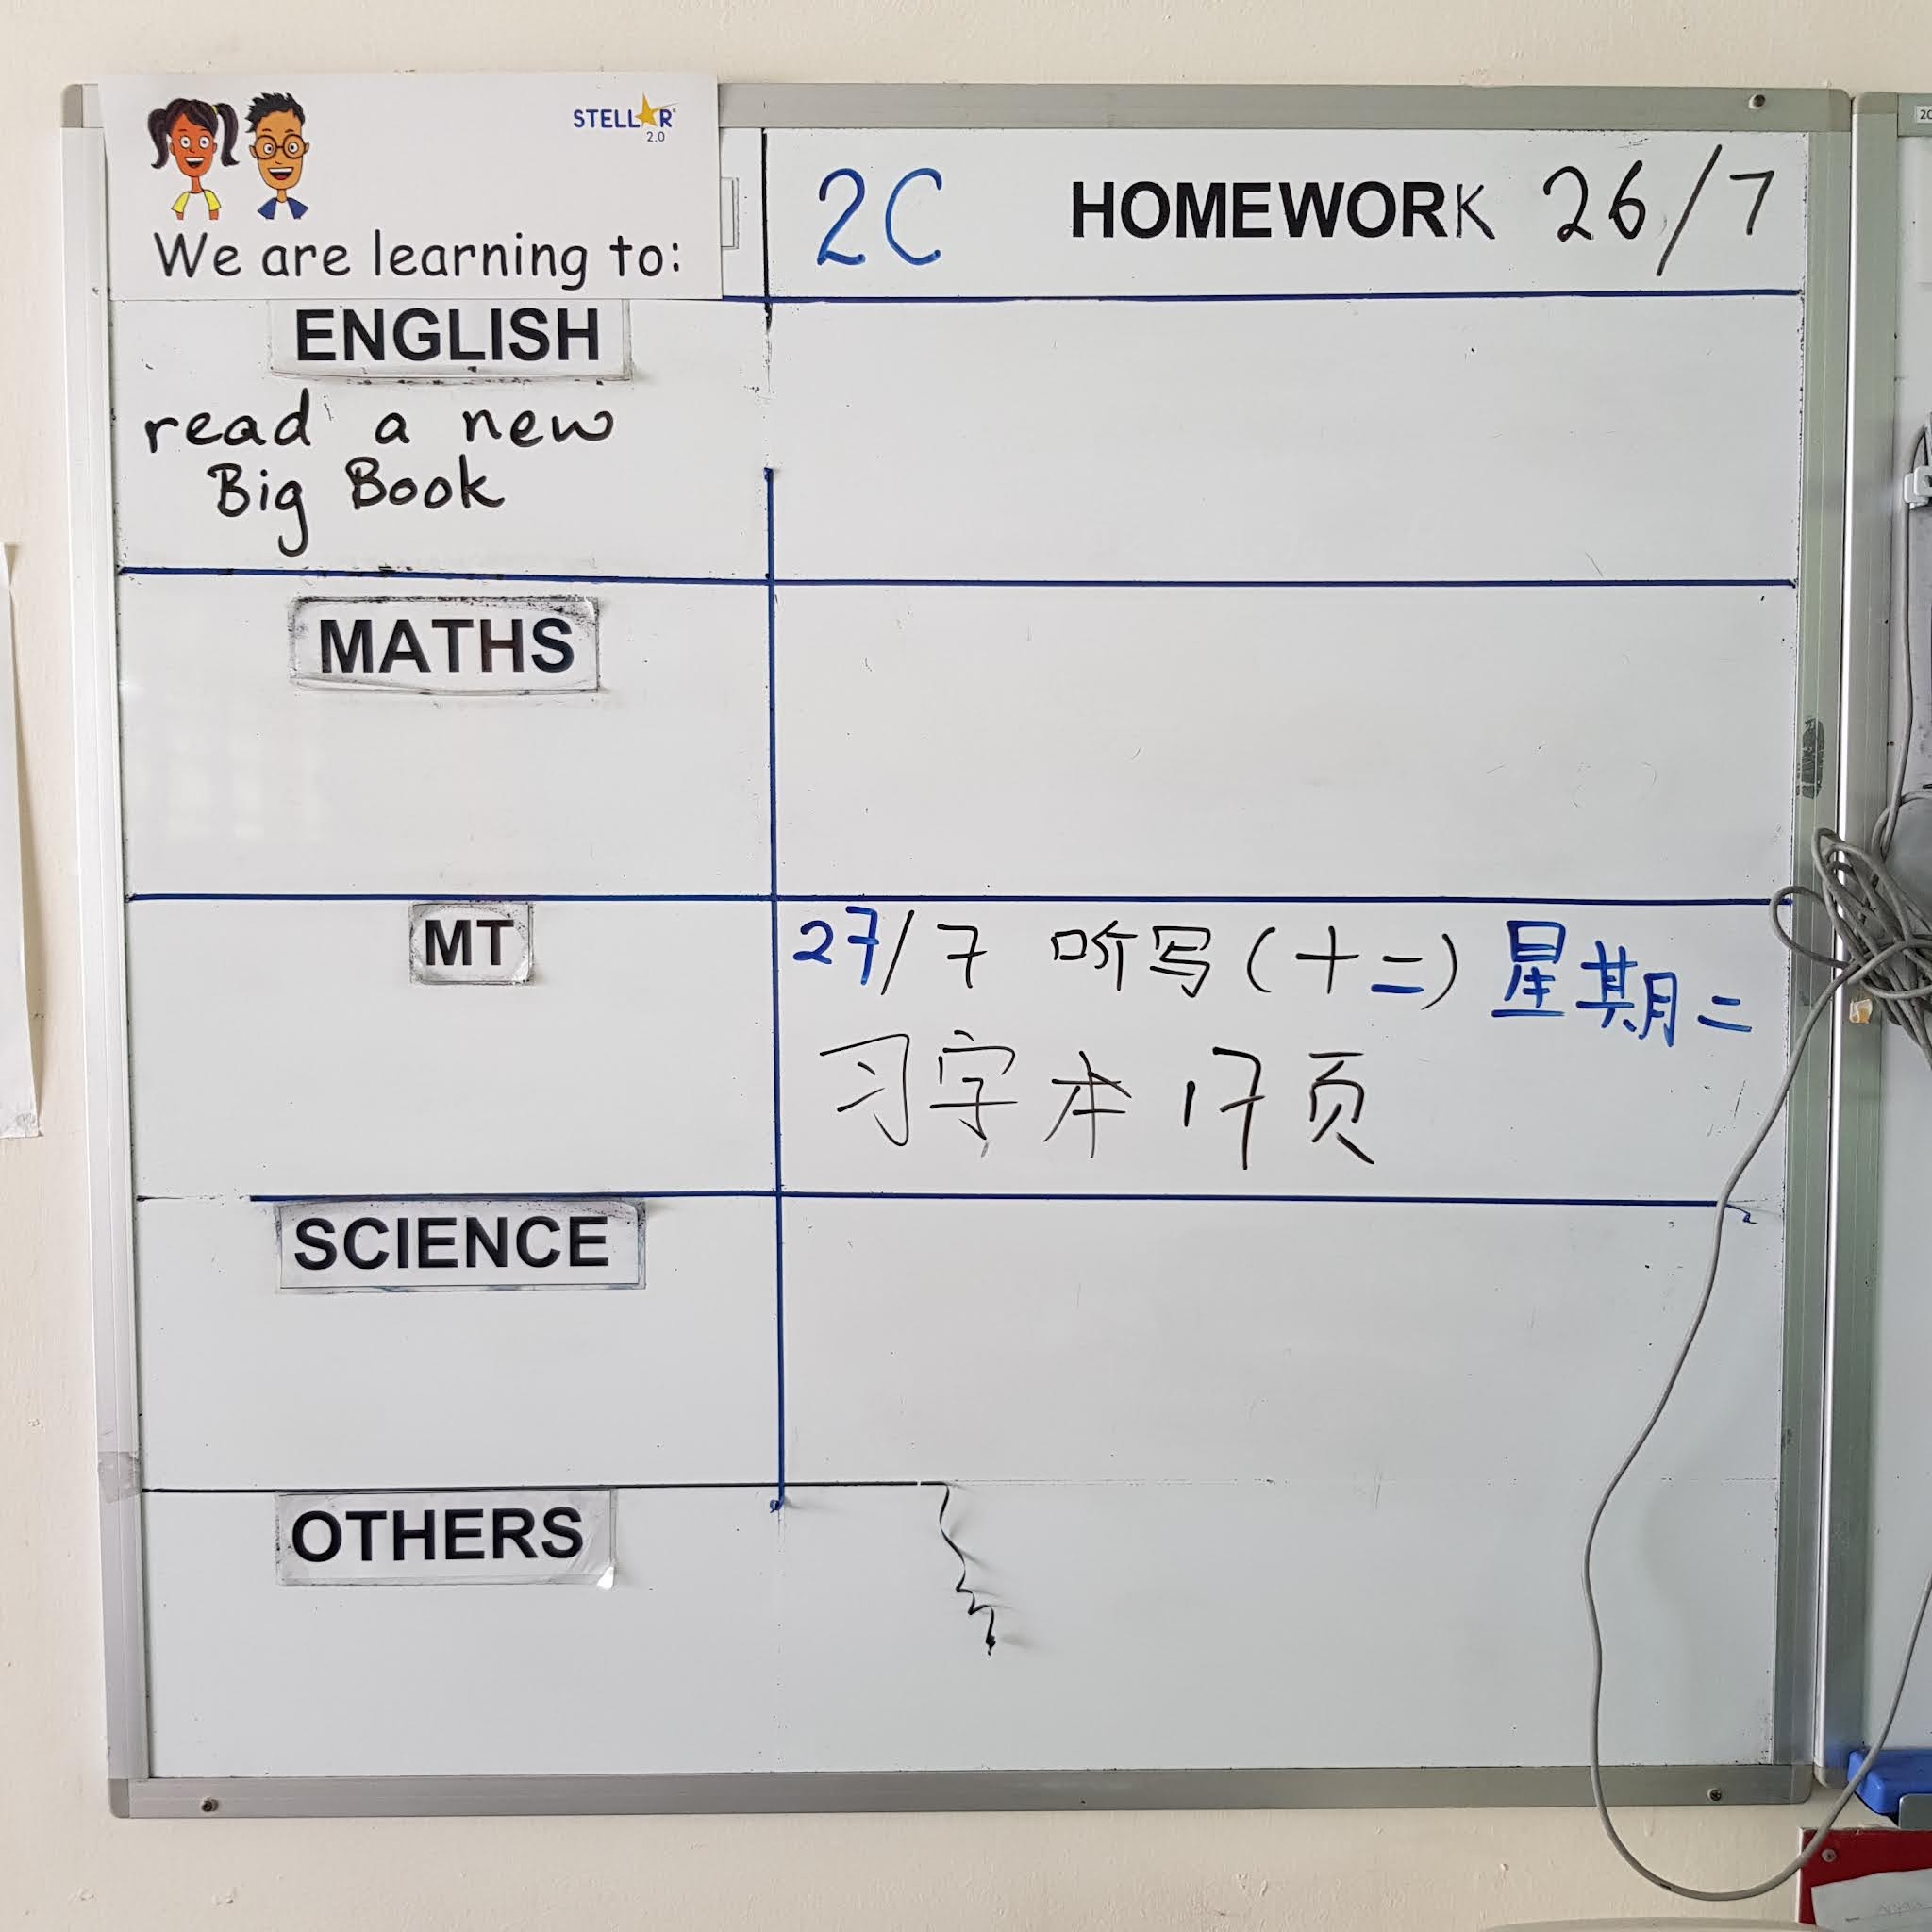 STELLAR 2.0
We are learning to:
2C HOMEWORK 26/7
ENGLISH
read a new
Big Book
MATHS
MT
27/7 听写(十二)星期二
习字本 17页
SCIENCE
OTHERS